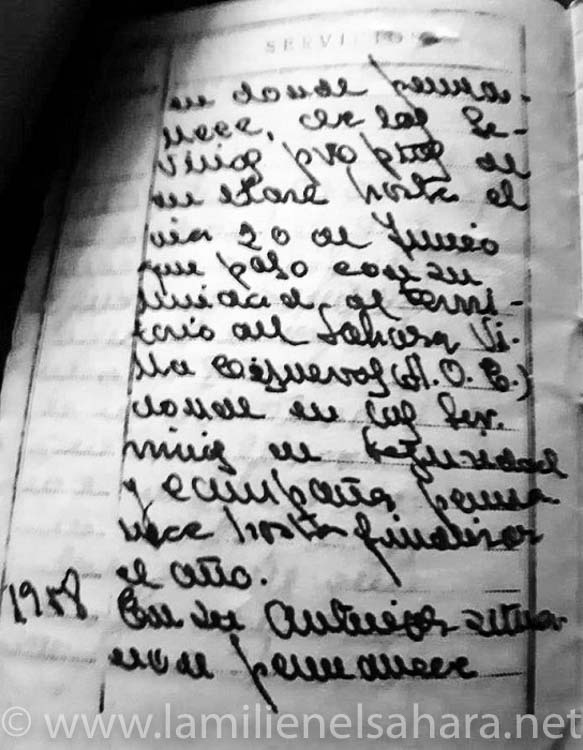 SERVICIOS
en donde perma-
nece, en los Ser-
vicios propios de
su clase hasta el
dia 20 de Junio
que paso con su
unidad al terri-
torio del Sahara Vi-
lla Cisneros (A.O.E.)
donde en los Ser-
vicios de seguridad
y campaña perma-
nece hasta finalizar
el año.
1958 En su anterior situa-
cion permanece
© www.lamilienelsahara.net